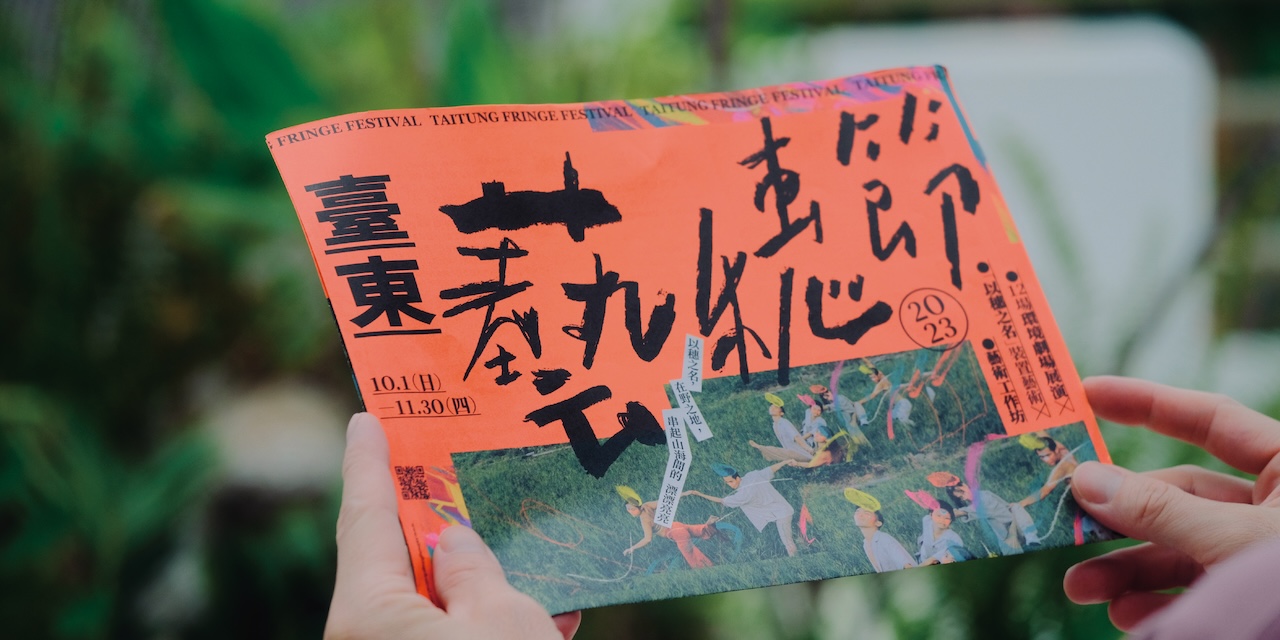 FRINGE FESTIVAL TAITUNG FRINGE FESTIVAL TAITUNG FRINGE FESTIVAL TAITUNG FR
臺東
藝穗節
2023
10.1(日)
—11.30(四)
以穗之名，
在野之地，
串起山海間的 漂漂亮亮
●12場環境劇場展演×
●以穗之名 裝置藝術×
●藝術工作坊